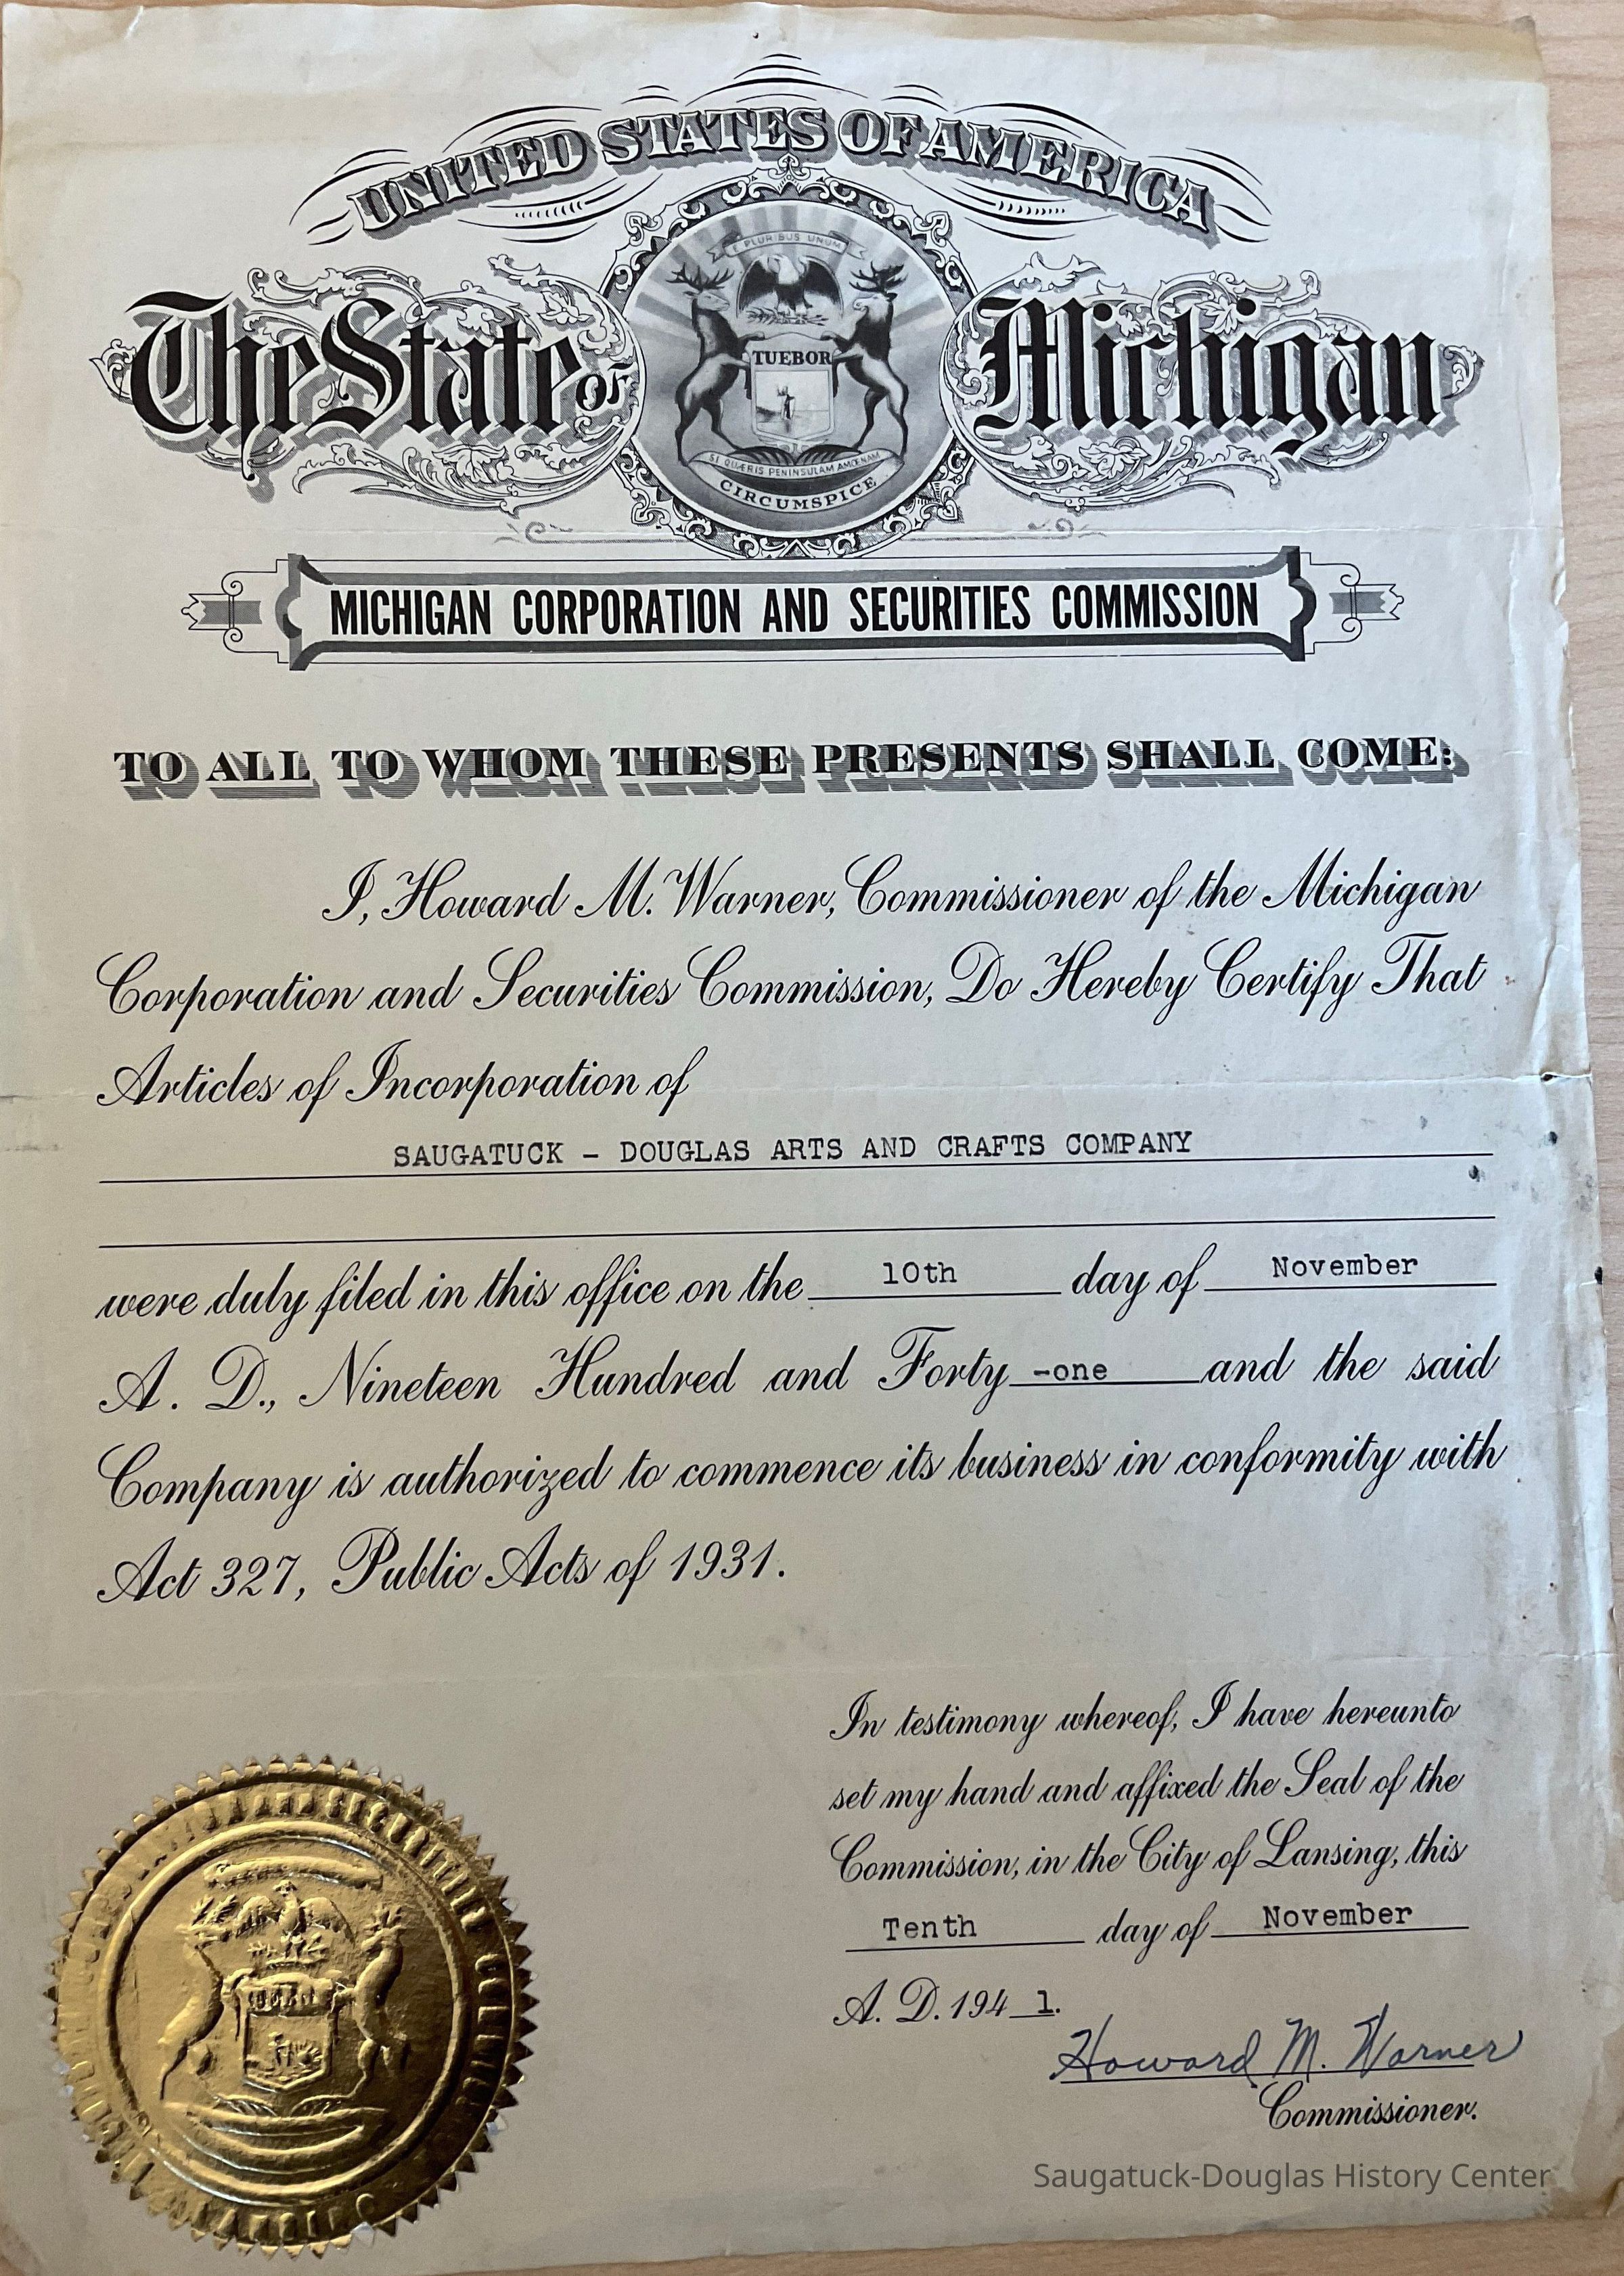 UNITED STATES OF AMERICA
E PLURIBUS UNUM
The State of Michigan
TUEBOR
SI QUÆRIS PENINSULAM AMŒNAM
CIRCUMSPICE
MICHIGAN CORPORATION AND SECURITIES COMMISSION
TO ALL TO WHOM THESE PRESENTS SHALL COME:
I, Howard M. Warner, Commissioner of the Michigan
Corporation and Securities Commission, Do Hereby Certify That
Articles of Incorporation of
SAUGATUCK - DOUGLAS ARTS AND CRAFTS COMPANY
were duly filed in this office on the 10th day of November
A. D., Nineteen Hundred and Forty -one and the said
Company is authorized to commence its business in conformity with
Act 327, Public Acts of 1931.
In testimony whereof, I have hereunto
set my hand and affixed the Seal of the
Commission, in the City of Lansing, this
Tenth day of November
A. D. 194 1.
Howard M. Warner
Commissioner.
Saugatuck-Douglas History Center